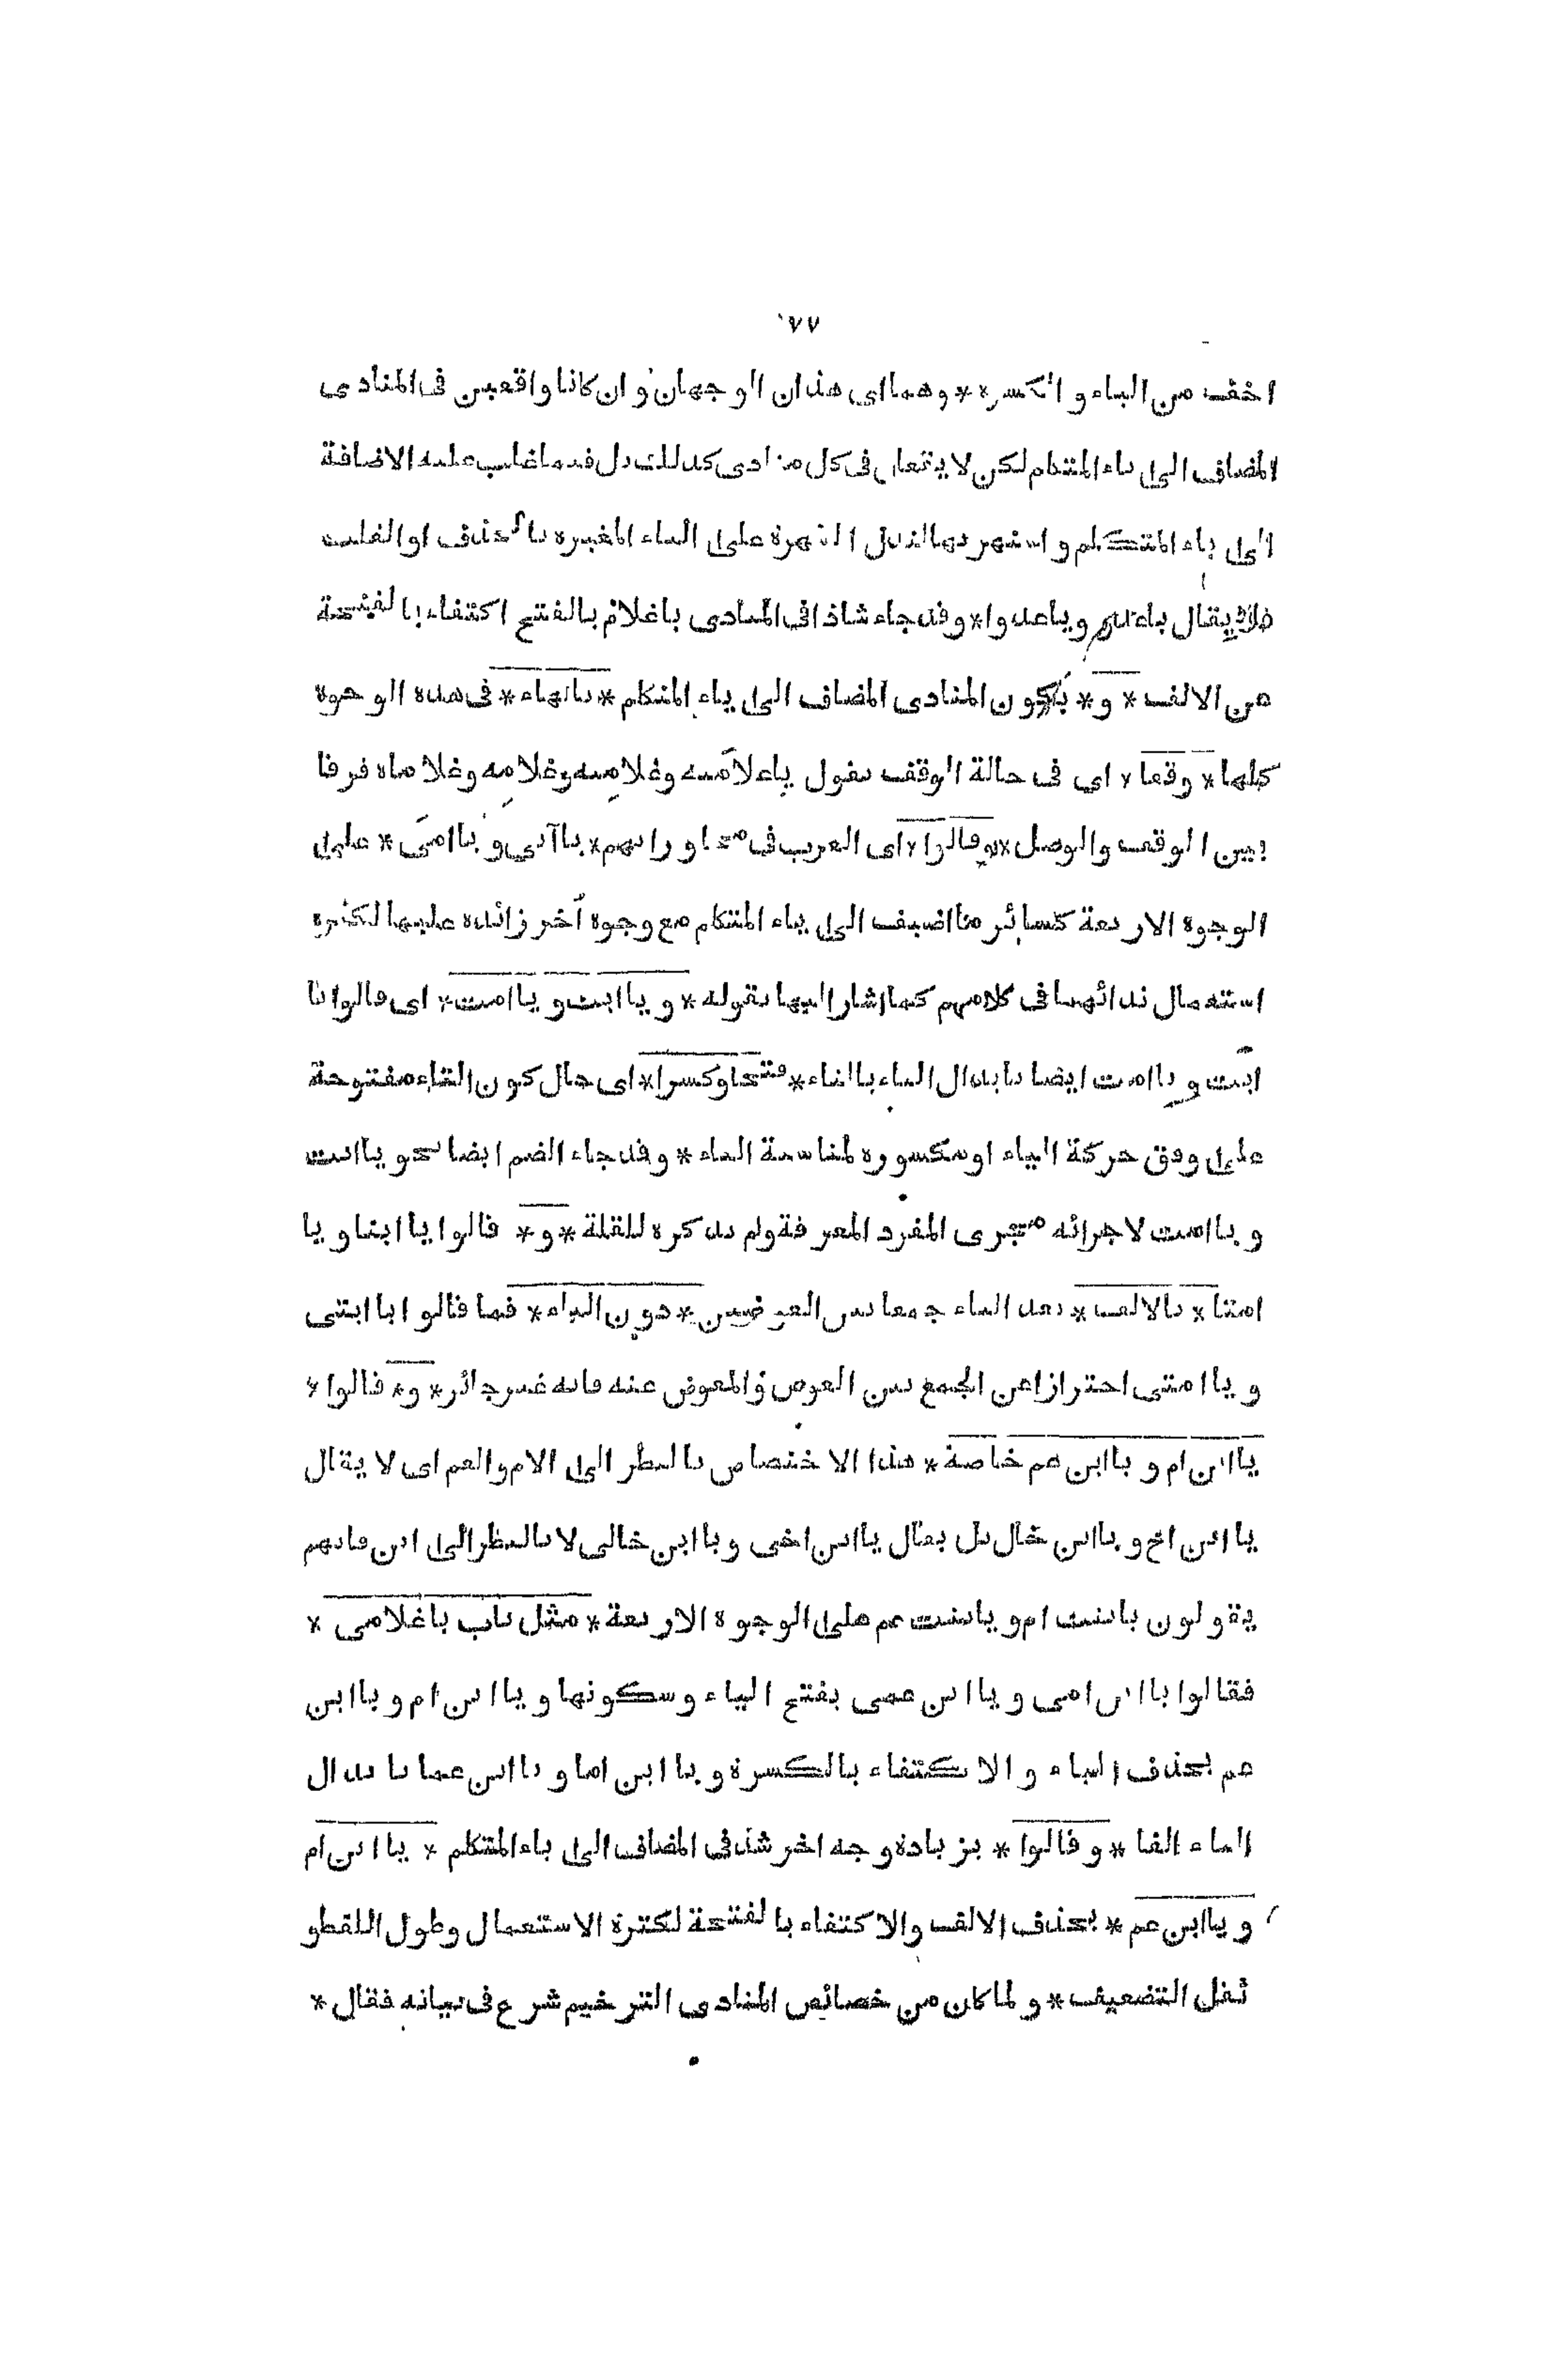 ٧٧
اخف من الياء والكسرة * وهما اى هذان الوجهان وان كانا واقعين فى المنادى
المضاف الى ياء المتكلم لكن لا يقعان فى كل منادى كذلك بل فيما غلب عليه الاضافة
الى ياء المتكلم واشتهر بها لتدل الشهرة على الياء المغيرة بالحذف او القلب
فلا يقال يا عدو ويا عدوا * وقد جاء شاذا فى المنادى يا غلام بالفتح اكتفاء بالفتحة
عن الالف * و * يكون المنادى المضاف الى ياء المتكلم * بالهاء * فى هذه الوجوه
كلها * وقفا * اى فى حالة الوقف تقول يا غلاميه وغلاميه وغلامه وغلاماه فرقا
بين الوقف والوصل * وقالوا * اى العرب فى محاوراتهم * يا ابى و يا امى * على
الوجوه الاربعة كسائر ما اضيف الى ياء المتكلم مع وجوه اخر زائدة عليها لكثرة
استعمال ندائهما فى كلامهم كما اشار اليها بقوله * و يا ابت و يا امت * اى قالوا يا
ابت و يا امت ايضا بابدال الياء بالتاء * فتحا وكسرا * اى حال كون التاء مفتوحة
على وفق حركة الياء او مكسورة لمناسبة الياء * وقد جاء الضم ايضا نحو يا ابت
و يا امت لاجرائه مجرى المفرد المعرفة ولم يذكره للقلة * و * قالوا يا ابتا و يا
امتا * بالالف * بعد التاء جمعا بين العوضين * دون الياء * فما قالوا يا ابتى
و يا امتى احترازا عن الجمع بين العوض والمعوض عنه فانه غير جائز * و * قالوا *
يا ابن ام و يا ابن عم خاصة * هذا الاختصاص بالنظر الى الام والعم اى لا يقال
يا ابن اخ و يا ابن خال بل يقال يا ابن اخى و يا ابن خالى لا بالنظر الى ابن فانهم
يقولون يا بنت ام و يا بنت عم على الوجوه الاربعة * مثل باب يا غلامى *
فقالوا يا ابن امى و يا ابن عمى بفتح الياء وسكونها و يا ابن ام و يا ابن
عم بحذف الياء والاكتفاء بالكسرة و يا ابن اما و يا ابن عما بابدال
الياء الفا * وقالوا * بزيادة وجه اخر شذ فى المضاف الى ياء المتكلم * يا ابن ام
و يا ابن عم * بحذف الالف والاكتفاء بالفتحة لكثرة الاستعمال وطول اللفظ و
ثقل التضعيف * ولما كان من خصائص المنادى الترخيم شرع فى بيانه فقال *